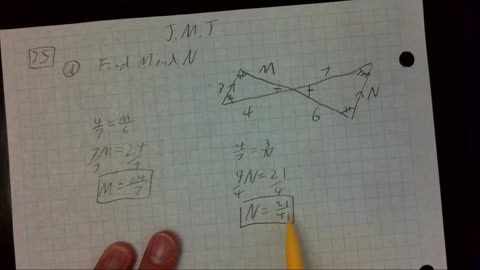 J.M.J
25
d Find M and N
M
7
3
4
6
N
4/7 = M/6
7M/7 = 24/7
M = 24/7
4/7 = 3/N
4N/4 = 21/4
N = 21/4